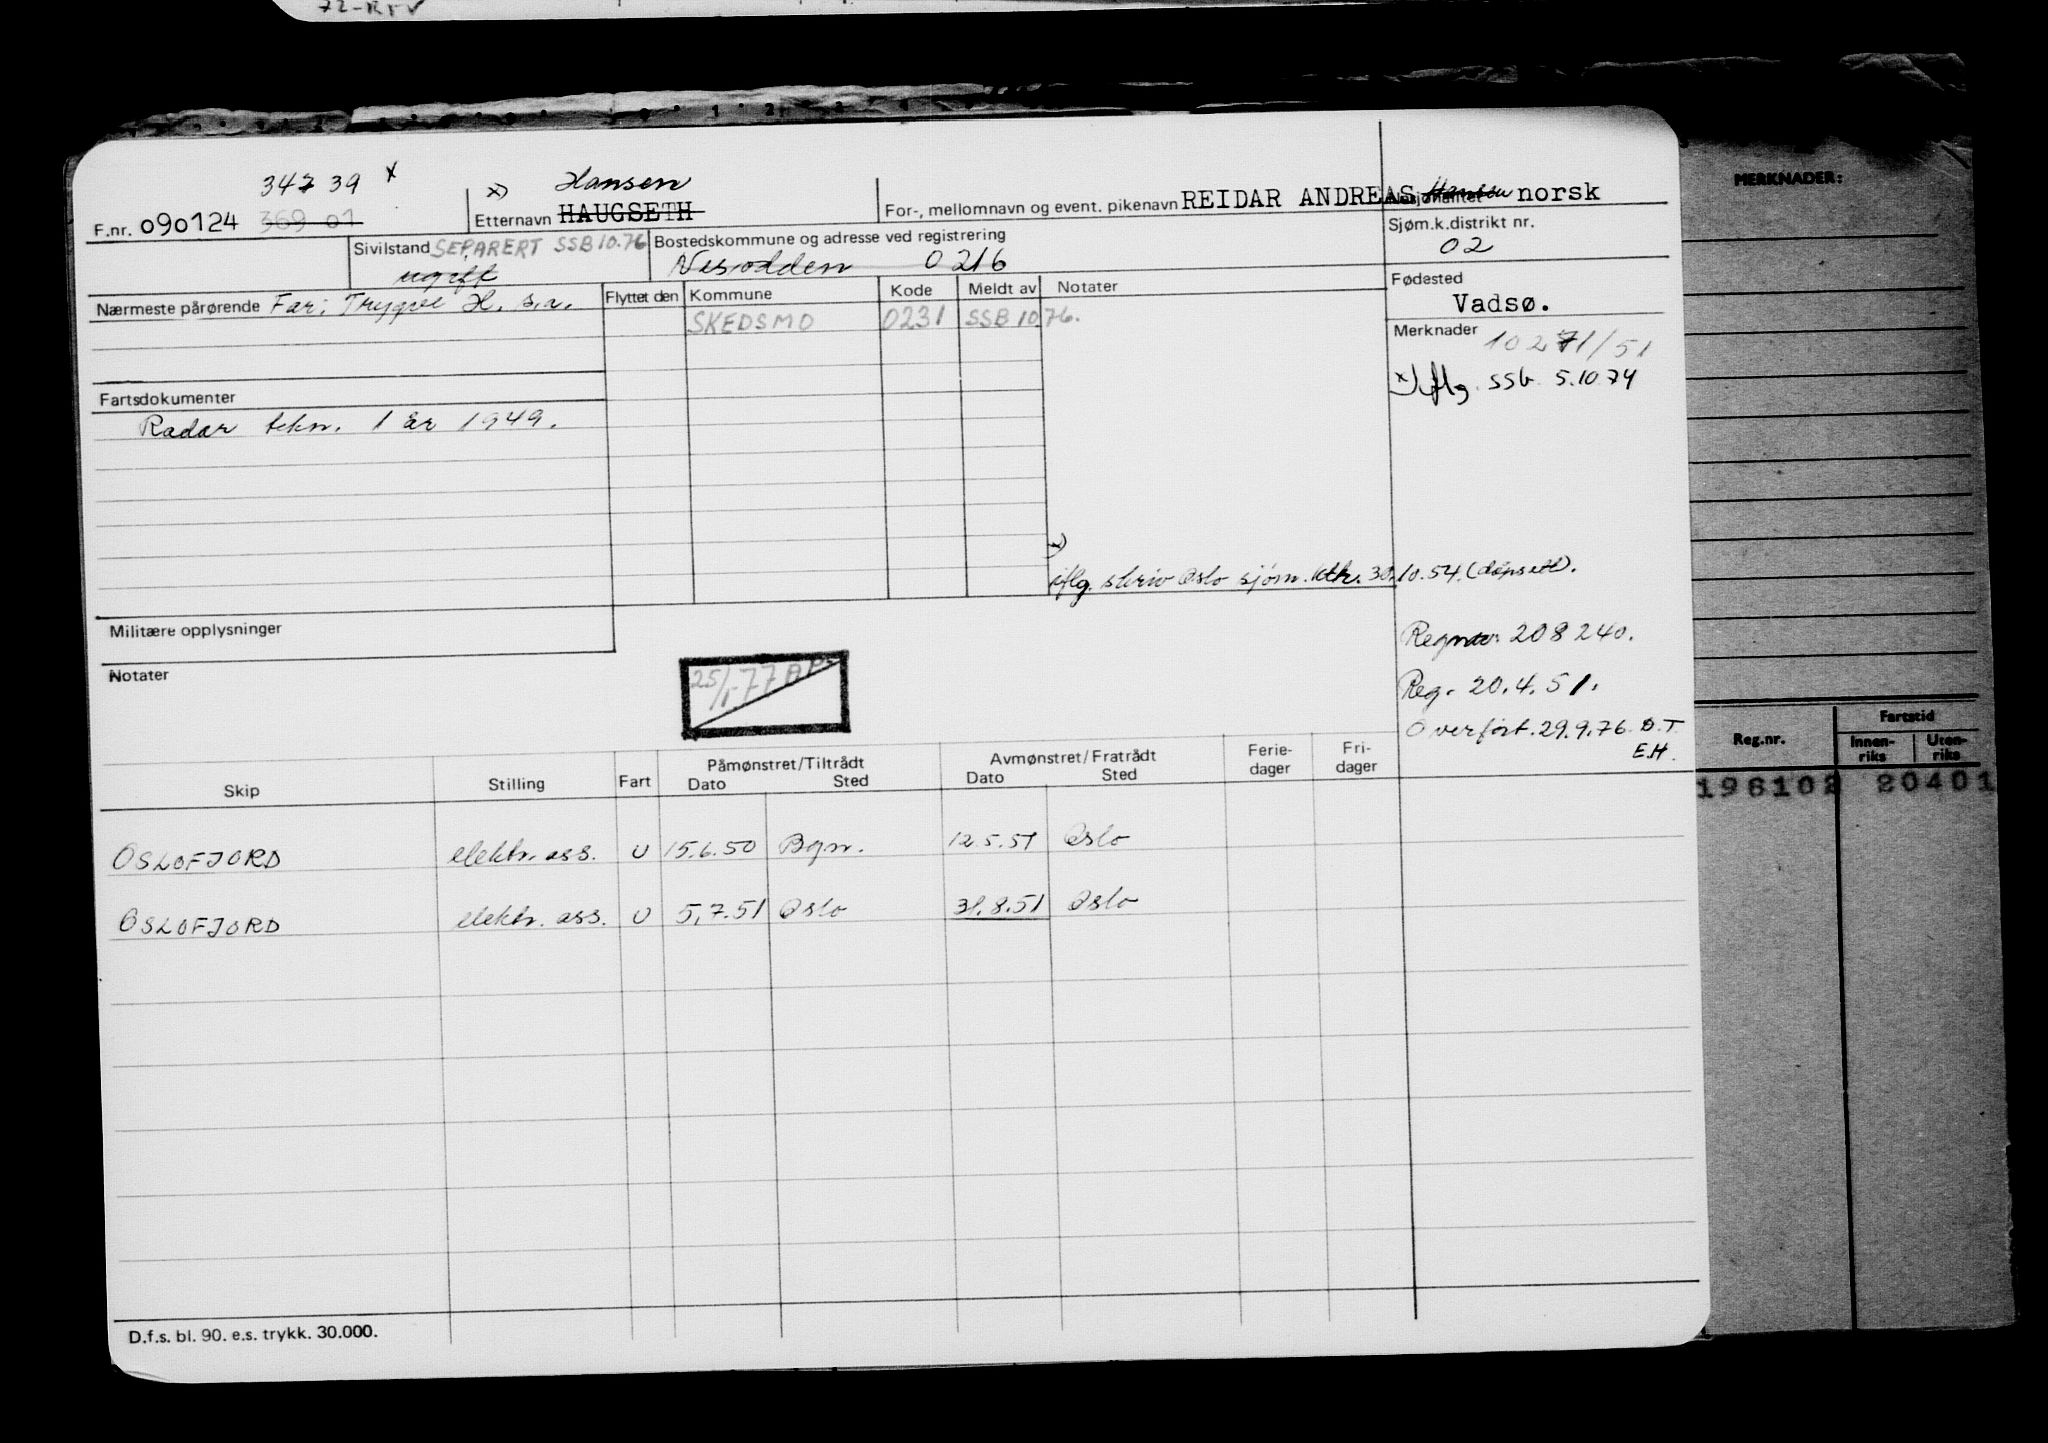 72-RTV
34739 x
x) Hansen
F.nr. 090124 369 01 Etternavn HAUGSETH For-, mellomnavn og event. pikenavn REIDAR ANDREAS Hansen Nasjonalitet norsk
Sivilstand SEPARERT SSB 10.76 Bostedskommune og adresse ved registrering Sjøm.k.distrikt nr.
ugift Nesodden 0216 02
Nærmeste pårørende Far: Trygve H. s.a. Flyttet den Kommune Kode Meldt av Notater Fødested
SKEDSMO 0231 SSB 10.76. Vadsø.
Merknader 10271/51
x) iflg. SSb. 5.10.74
Fartsdokumenter
Radar tekn. 1 år 1949.
x)
iflg. skriv Oslo sjøm.ktr. 30.10.54. (dåpsatt).
Militære opplysninger
Regnr. 208240.
Notater
25/1-77
Reg. 20.4.51.
Overført. 29.9.76 D.T.
E.H.
Skip Stilling Fart Påmønstret/Tiltrådt Dato Sted Avmønstret/Fratrådt Dato Sted Ferie-dager Fri-dager
OSLOFJORD elektr. ass. U 15.6.50 Bgn. 12.5.51 Oslo
OSLOFJORD elektr. ass. U 5.7.51 Oslo 31.8.51 Oslo
D.f.s. bl. 90. e.s. trykk. 30.000.
MERKNADER:
Reg.nr. Fartstid
Innen-riks Uten-riks
196102 20401